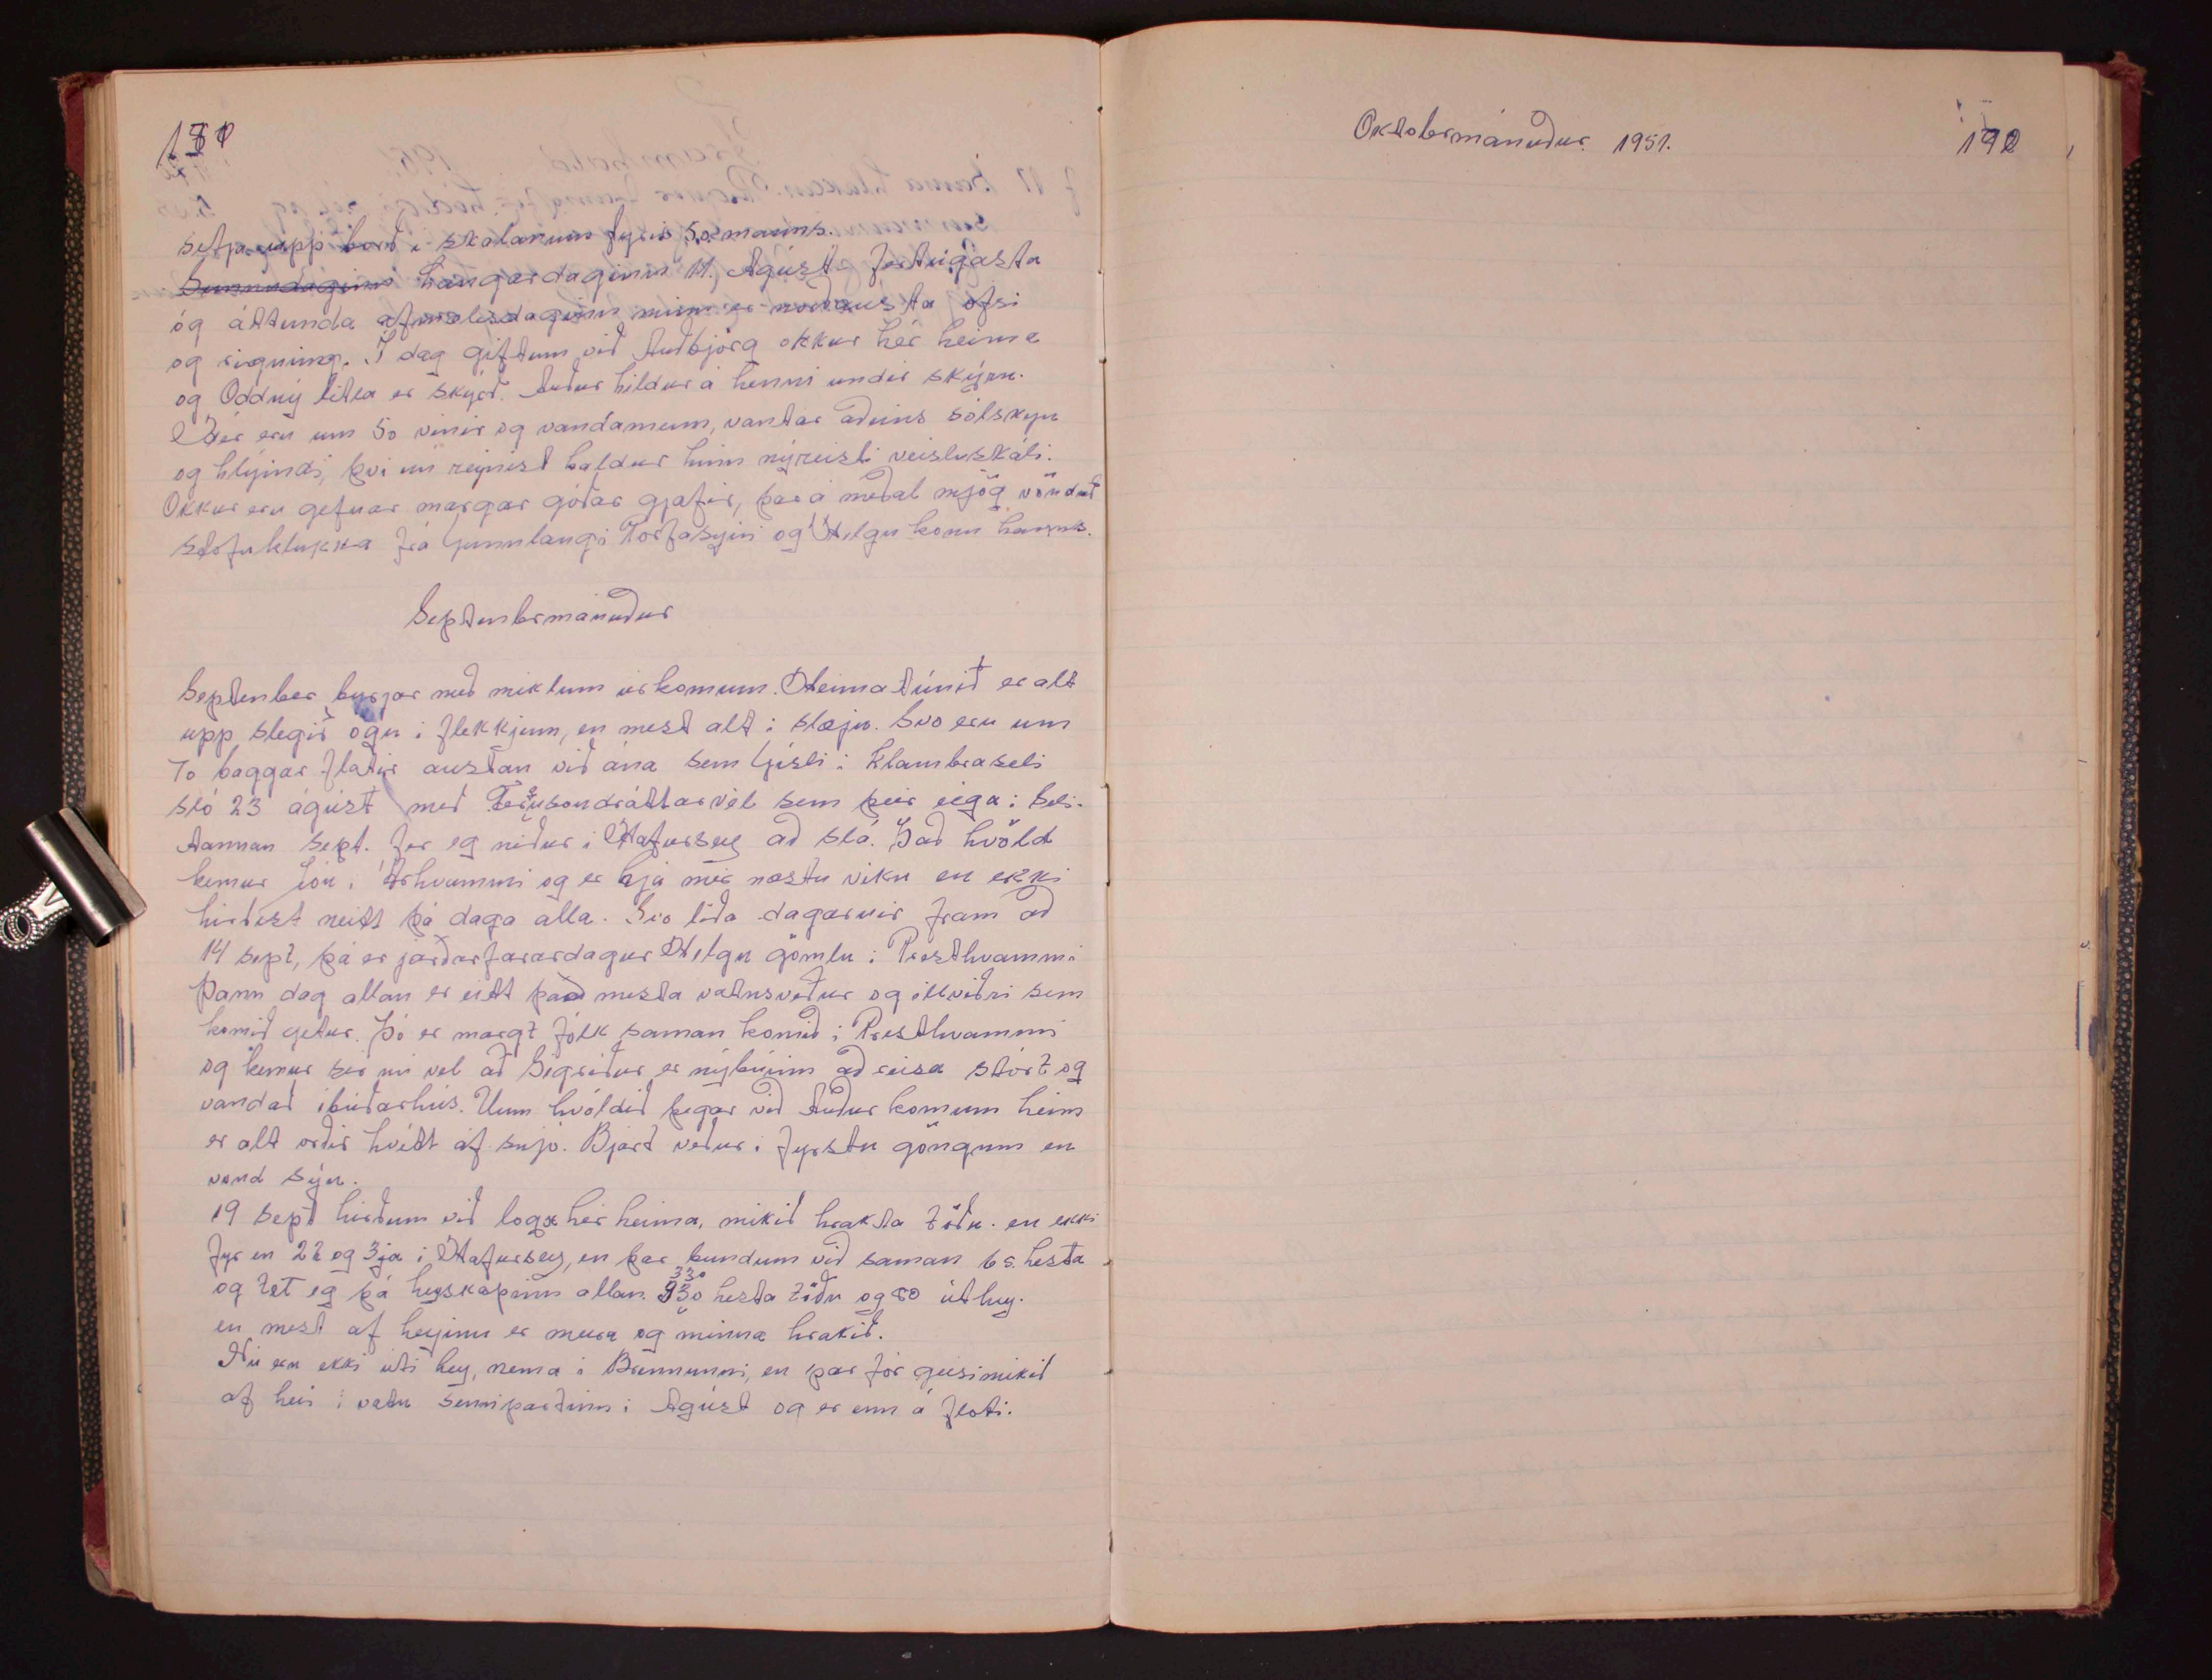 setja upp borð í skálanum fyrir 50 manns.
Sunnudaginn Laugardaginn 11. Ágúst fertugasta
og áttunda afmælisdaginn minn er norðausta ofsi
og rigning. Í dag giftum við Auðbjörg okkur hér heima
og Oddný litla er skýrð. Auður hildur á henni undir skýrn.
Hér eru um 50 vinir og vandamenn, vantar aðeins sólskyn
og hlýindi, því nú reynist kaldur hinn nýreisti veisluskáli.
Okkur eru gefnar margar góðar gjafir, þar á meðal mjög vönduð
stofuklukka frá Gunnlaugi Torfasyni og Helgu konu hanns.
Septembermánuður
September byrjar með miklum úrkomum. Heimatúnið er alt
upp slegið ögn í flekkjum, en mest alt í slægju. Svo eru um
70 baggar flatir austan við ána sem Gísli í Klambraseli
sló 23 ágúst með Fergusondráttarvél sem þeir eiga í Seli.
Annan Sept. fer eg niður í Hafursey að slá. Það kvöld
kemur Jón í Árhvammi og er hjá mér næstu viku en ekki
hirðist neitt þá daga alla. Svo líða dagarnir fram að
14 sept, þá er jarðarfarardagur Helgu gömlu í Presthvammi
Þann dag allan er eitt það mesta vatnsveður og illviðri sem
komið getur. Þó er margt fólk saman komið í Presthvammi
og kemur sér nú vel að Sigríður er nýbúinn að reisa stórt og
vandað íbúðarhús. Uum kvöldið þegar við Auður komum heim
er alt orðið hvítt af snjó. Bjart veður í fyrstu göngum en
vond sýn.
19 sept hirðum við loga hér heima, mikið hrakta töðu. en ekki
fyr en 22 og 3ja í Hafursey, en þar bundum við saman 65 hesta
og tet eg þá heyskapinn allan. 330 hesta töðu og 80 úthey.
en mest af heyinu er meira og minna hrakið.
Nú eru ekki úti hey, nema í Brennunni, en þar fór geisimikið
af heii í vatn seinnipartinn í Ágúst og er enn á floti.
Októbermánuður. 1951.
192